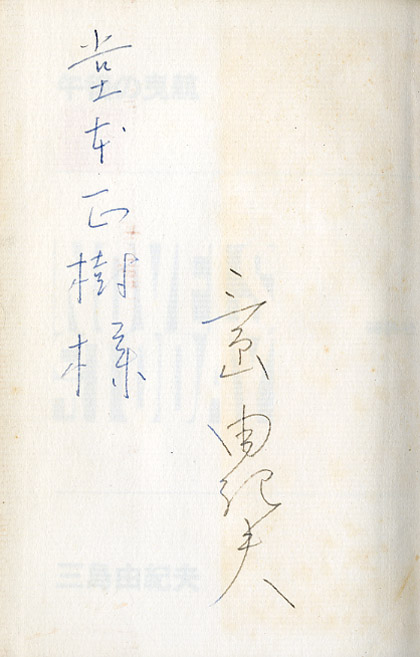 三島由紀夫
堂本正樹様
午後の曳航
三島由紀夫